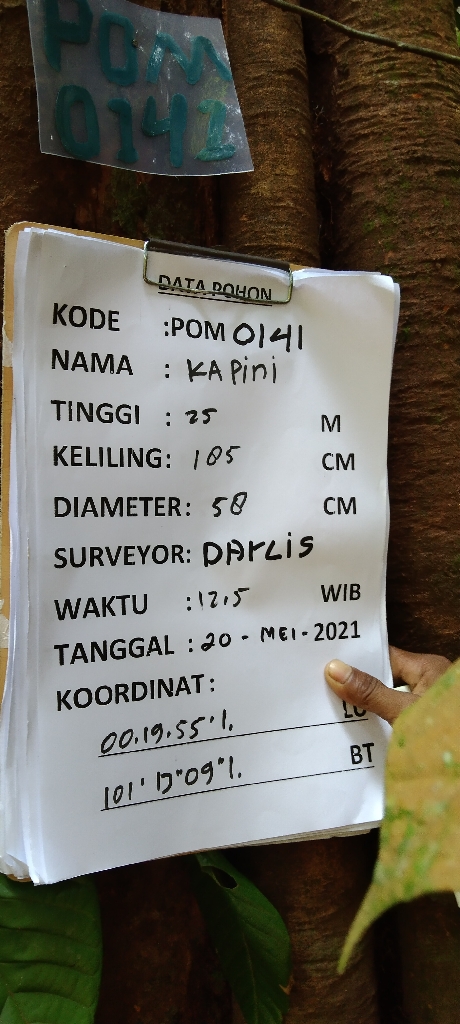 POM
0141
DATA POHON
KODE :POM 0141
NAMA : KAPini
TINGGI : 25 M
KELILING: 185 CM
DIAMETER: 58 CM
SURVEYOR: DArLiS
WAKTU :12.5 WIB
TANGGAL :20 - MEI - 2021
KOORDINAT:
00.19.55'1. LU
BT